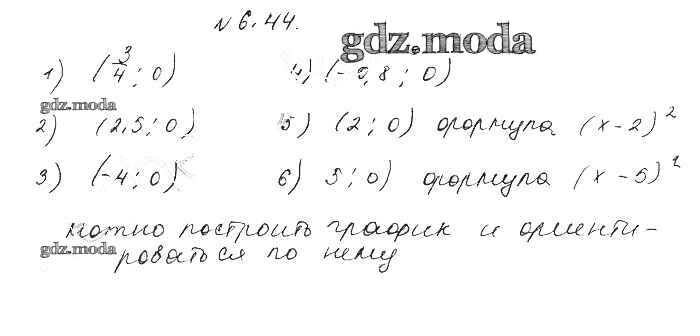 N 6.44.
gdz.moda
1) (3/4; 0)
4) (-5,8; 0)
gdz.moda
2) (2,5; 0)
5) (2; 0) формула (x-2)²
3) (-4; 0)
6) 5; 0) формула (x-5)²
можно построить график и ориенти-
gdz.moda
роваться по нему